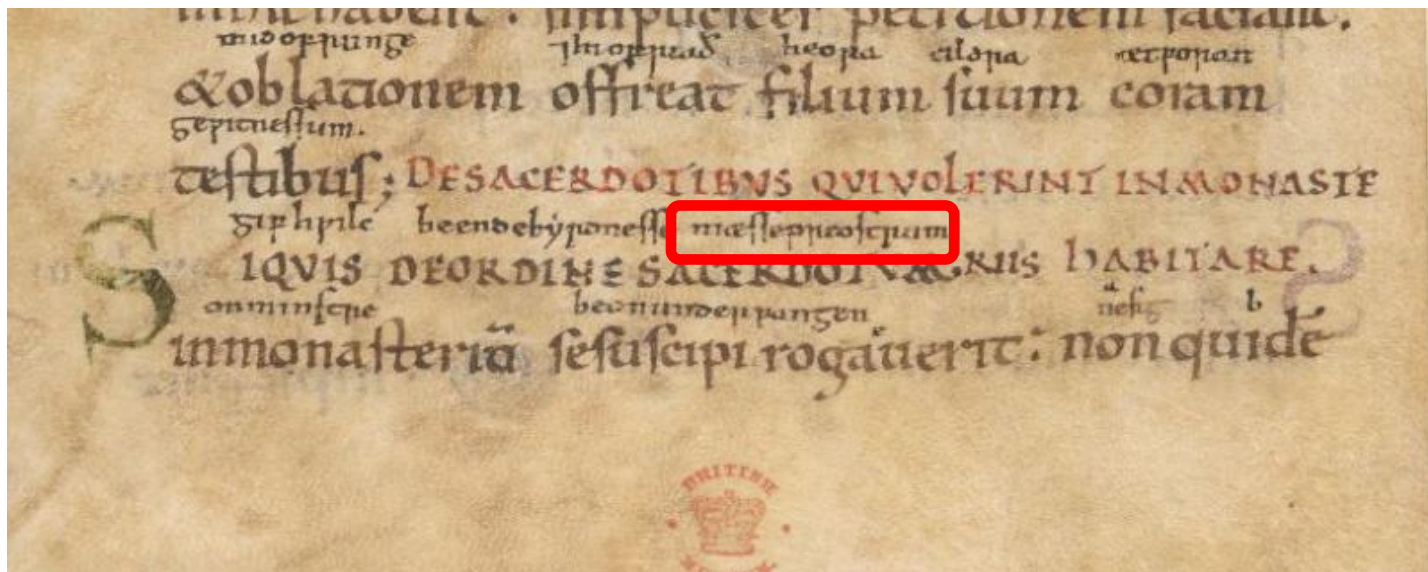 habent : simpliciter petitionem faciant.
midoffrunge ⁊hi offriað heora cildra ætforan
&oblationem offreat filium suum coram
geƿitnessum.
testibus; DESACERDOTIBVS QVIVOLERINT INMONASTE
gif hƿilc beendebyrdnesse mæssepreostrum
SIQVIS DEORDINE SACERDOTVM. RIIS HABITARE.
onminstre beonunderfangen nesig b
inmonasteriū sesuscipi rogauerit: nonquidē
BRITISH